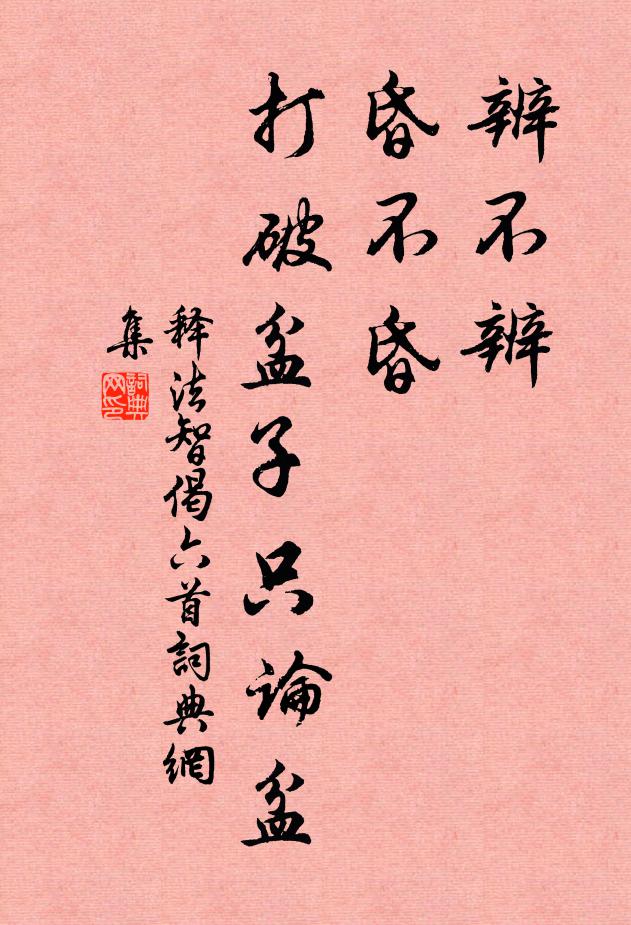 辨不辨
昏不昏
打破盆子只论盆
释法智偈六首詞典網
集
詞典
网印